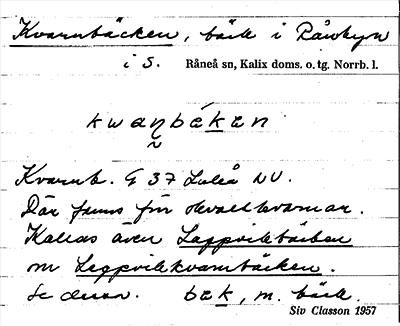 Kvarnbäcken, bäck i Rånbyn
i S. Råneå sn, Kalix doms. o. tg. Norrb. l.
kwaŋbékən
Kvarnb. G 37 Luleå NV.
Där finns för skvaltkvarnar.
Kallas även Lappvikbäcken
o Leppvikkvarnbäcken.
Se dessa. bɛk, m. bäck.
Siv Classon 1957